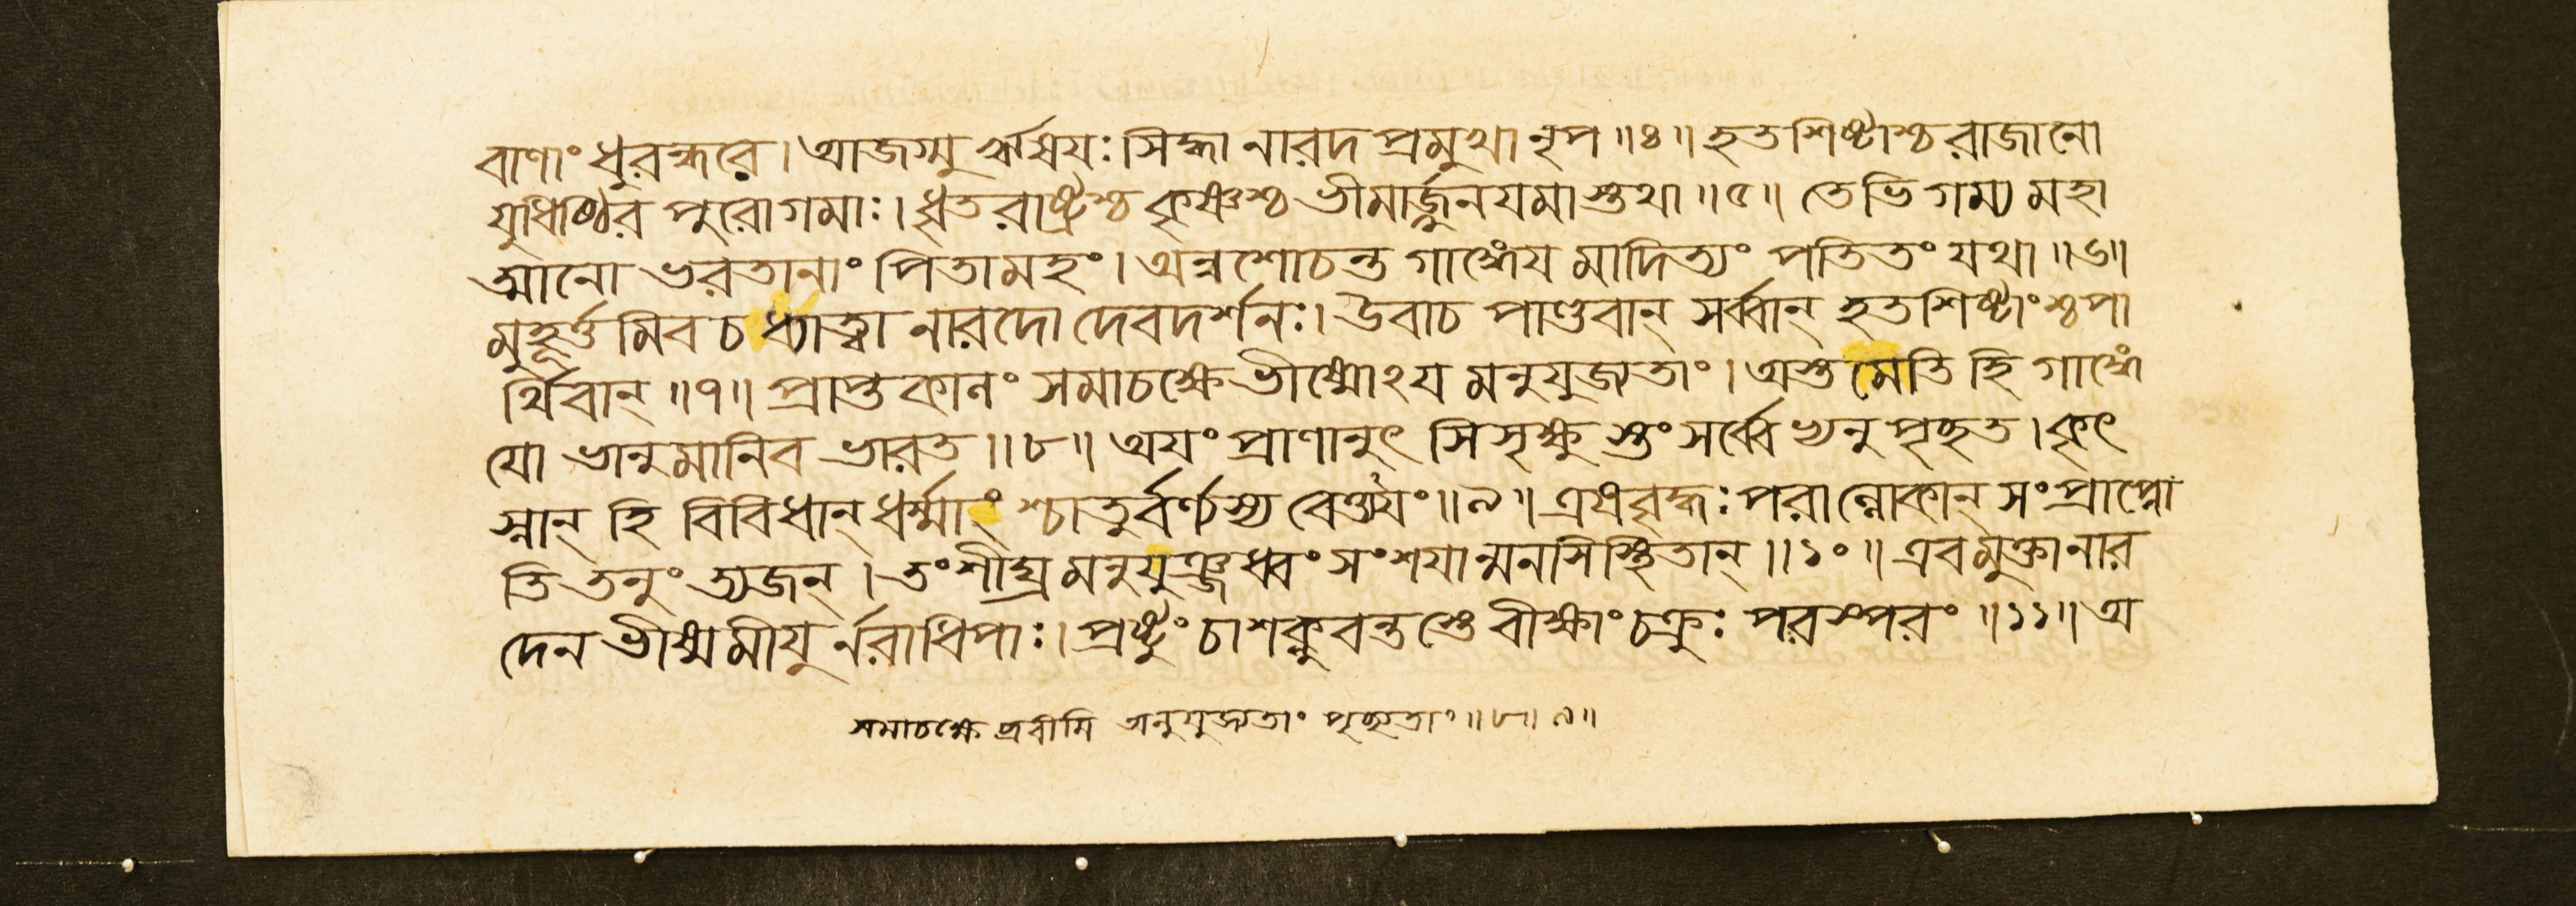 বাণাং ধুরন্ধরে। আজগ্মু র্ঋষয়ঃ সিদ্ধা নারদ প্রমুখা নৃপ ॥৪॥ হতশিষ্টাশ্চ রাজানো
যুধিষ্ঠির পুরোগমাঃ। ধৃতরাষ্ট্রশ্চ কৃষ্ণশ্চ ভীমার্জ্জুনযমাস্তথা ॥৫॥ তেভি গম্য মহা
ত্মানো ভরতানাং পিতামহং। অন্বশোচন্ত গাঙ্গেয মাদিত্যং পতিতং যথা ॥৬॥
মুহূর্ত্ত মিব চ ধ্যাত্বা নারদো দেবদর্শনঃ। উবাচ পাণ্ডবান্ সর্ব্বান্ হতশিষ্টাংশ্চপা
র্থিবান্ ॥৭॥ প্রাপ্তকালং সমাচক্ষে ভীষ্মোঽয মনুযুজ্যতাং। অস্তমেতি হি গাঙ্গে
যো ভানুমানিব ভারত ॥৮॥ অযং প্রাণানুৎ সিসৃক্ষু স্তং সর্ব্বে হ্যনু পৃচ্ছত। কৃৎ
স্নান্ হি বিবিধান্ ধর্ম্মাং শ্চাতুর্বর্ণস্য বেত্ত্যযং ॥৯॥ এষবৃদ্ধঃ পরাল্লোকান্ সংপ্রাপ্নো
তি তনুং ত্যজন্। তং শীঘ্র মনুযুঞ্জধ্বং সংশযান্মনসিস্থিতান্ ॥১০॥ এবমুক্তানার
দেন ভীষ্মমীযু র্নরাধিপাঃ। প্রষ্টুং চাশক্নুবন্তস্তে বীক্ষাং চক্রুঃ পরস্পরং ॥১১॥ অ
সমাচক্ষে ব্রবীমি অনুযুজ্যতাং পৃচ্ছ্যতাং ॥৮॥৯॥